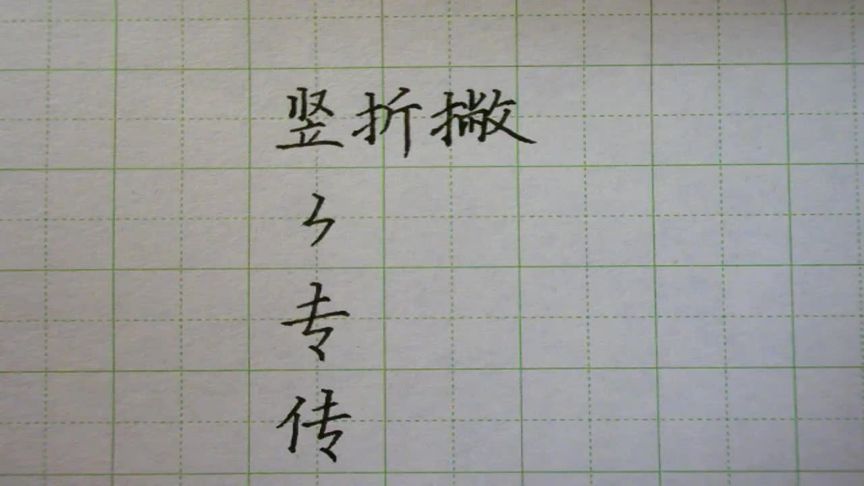 竖折撇
ㄣ
专
传